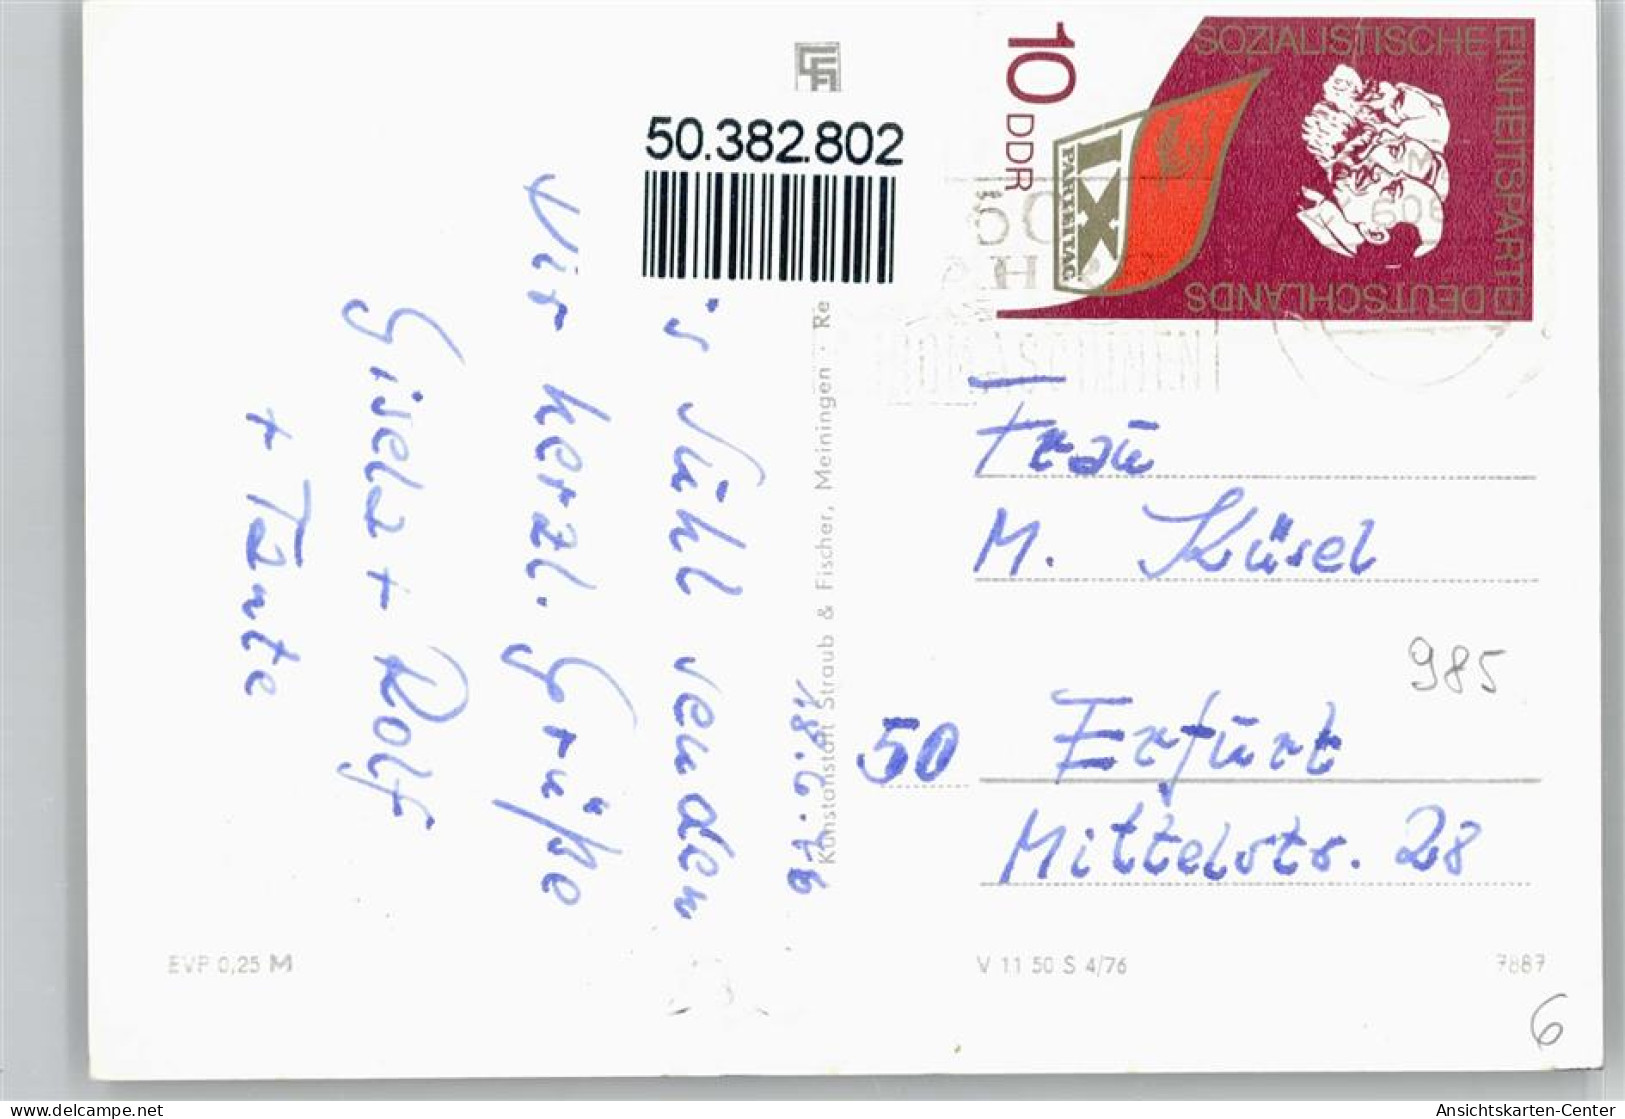 50.382.802
10 DDR
SOZIALISTISCHE
EINHEITSPARTEI
DEUTSCHLANDS
IX
PARTEITAG
Kunstanstalt Straub & Fischer, Meiningen · Re
18.6.76
's Suhl senden
wir herzl. Grüße
Gisela + Rolf
+ Tante
Frau
M. Küsel
985
50 Erfurt
Mittelstr. 28
EVP 0,25 M
V 11 50 S 4/76
7887
6
Ansichtskarten-Center